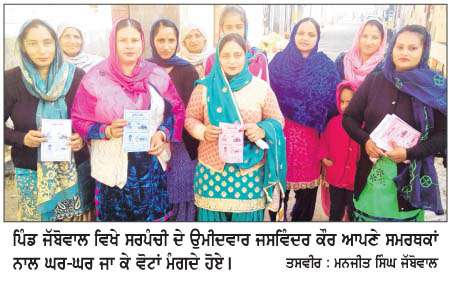 ਪਿੰਡ ਜੱਬੋਵਾਲ ਵਿਖੇ ਸਰਪੰਚੀ ਦੇ ਉਮੀਦਵਾਰ ਜਸਵਿੰਦਰ ਕੌਰ ਆਪਣੇ ਸਮਰਥਕਾਂ
ਨਾਲ ਘਰ-ਘਰ ਜਾ ਕੇ ਵੋਟਾਂ ਮੰਗਦੇ ਹੋਏ। ਤਸਵੀਰ : ਮਨਜੀਤ ਸਿੰਘ ਜੱਬੋਵਾਲ